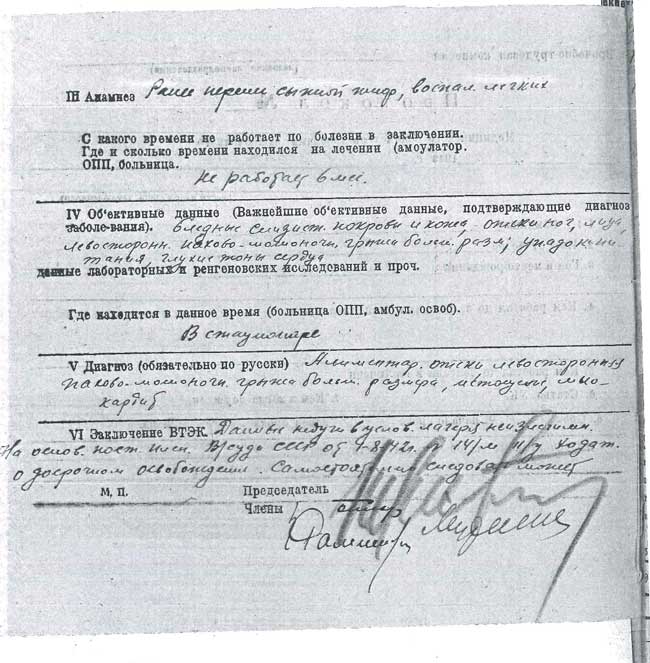 III Анамнез Ранее перенес сыпной тиф, воспал. легких
С какого времени не работает по болезни в заключении.
Где и сколько времени находился на лечении (амоулатор.
ОПП, больница.
Не работает 6 мес.
IV Об'ективные данные (Важнейшие об'ективные данные, подтверждающие диагноз
заболе-вания). Бледные слизист. покровы и кожа, отеки ног, лица,
левосторонн. пахово-мошоночн. грыжа больш. разм., упадок пи-
тания, глухие тоны сердца
данные лабораторных и ренгеновских исследований и проч.
Где находится в данное время (больница ОПП, амбул. освоб).
В стационаре
V Диагноз (обязательно по русски) Алиментар. отеки левосторонняя
пахово-мошоночн. грыжа больш. размера, истощение, мио-
кардит
VI Заключение ВТЭК. Данные недуги в услов. лагеря неизлечимы.
На основ. пост. В/суда СССР от 1-8-42г. 14/м п/у ходат.
о досрочном освобождении. Самостоятельно следовать может
М, П. Председатель
Члены